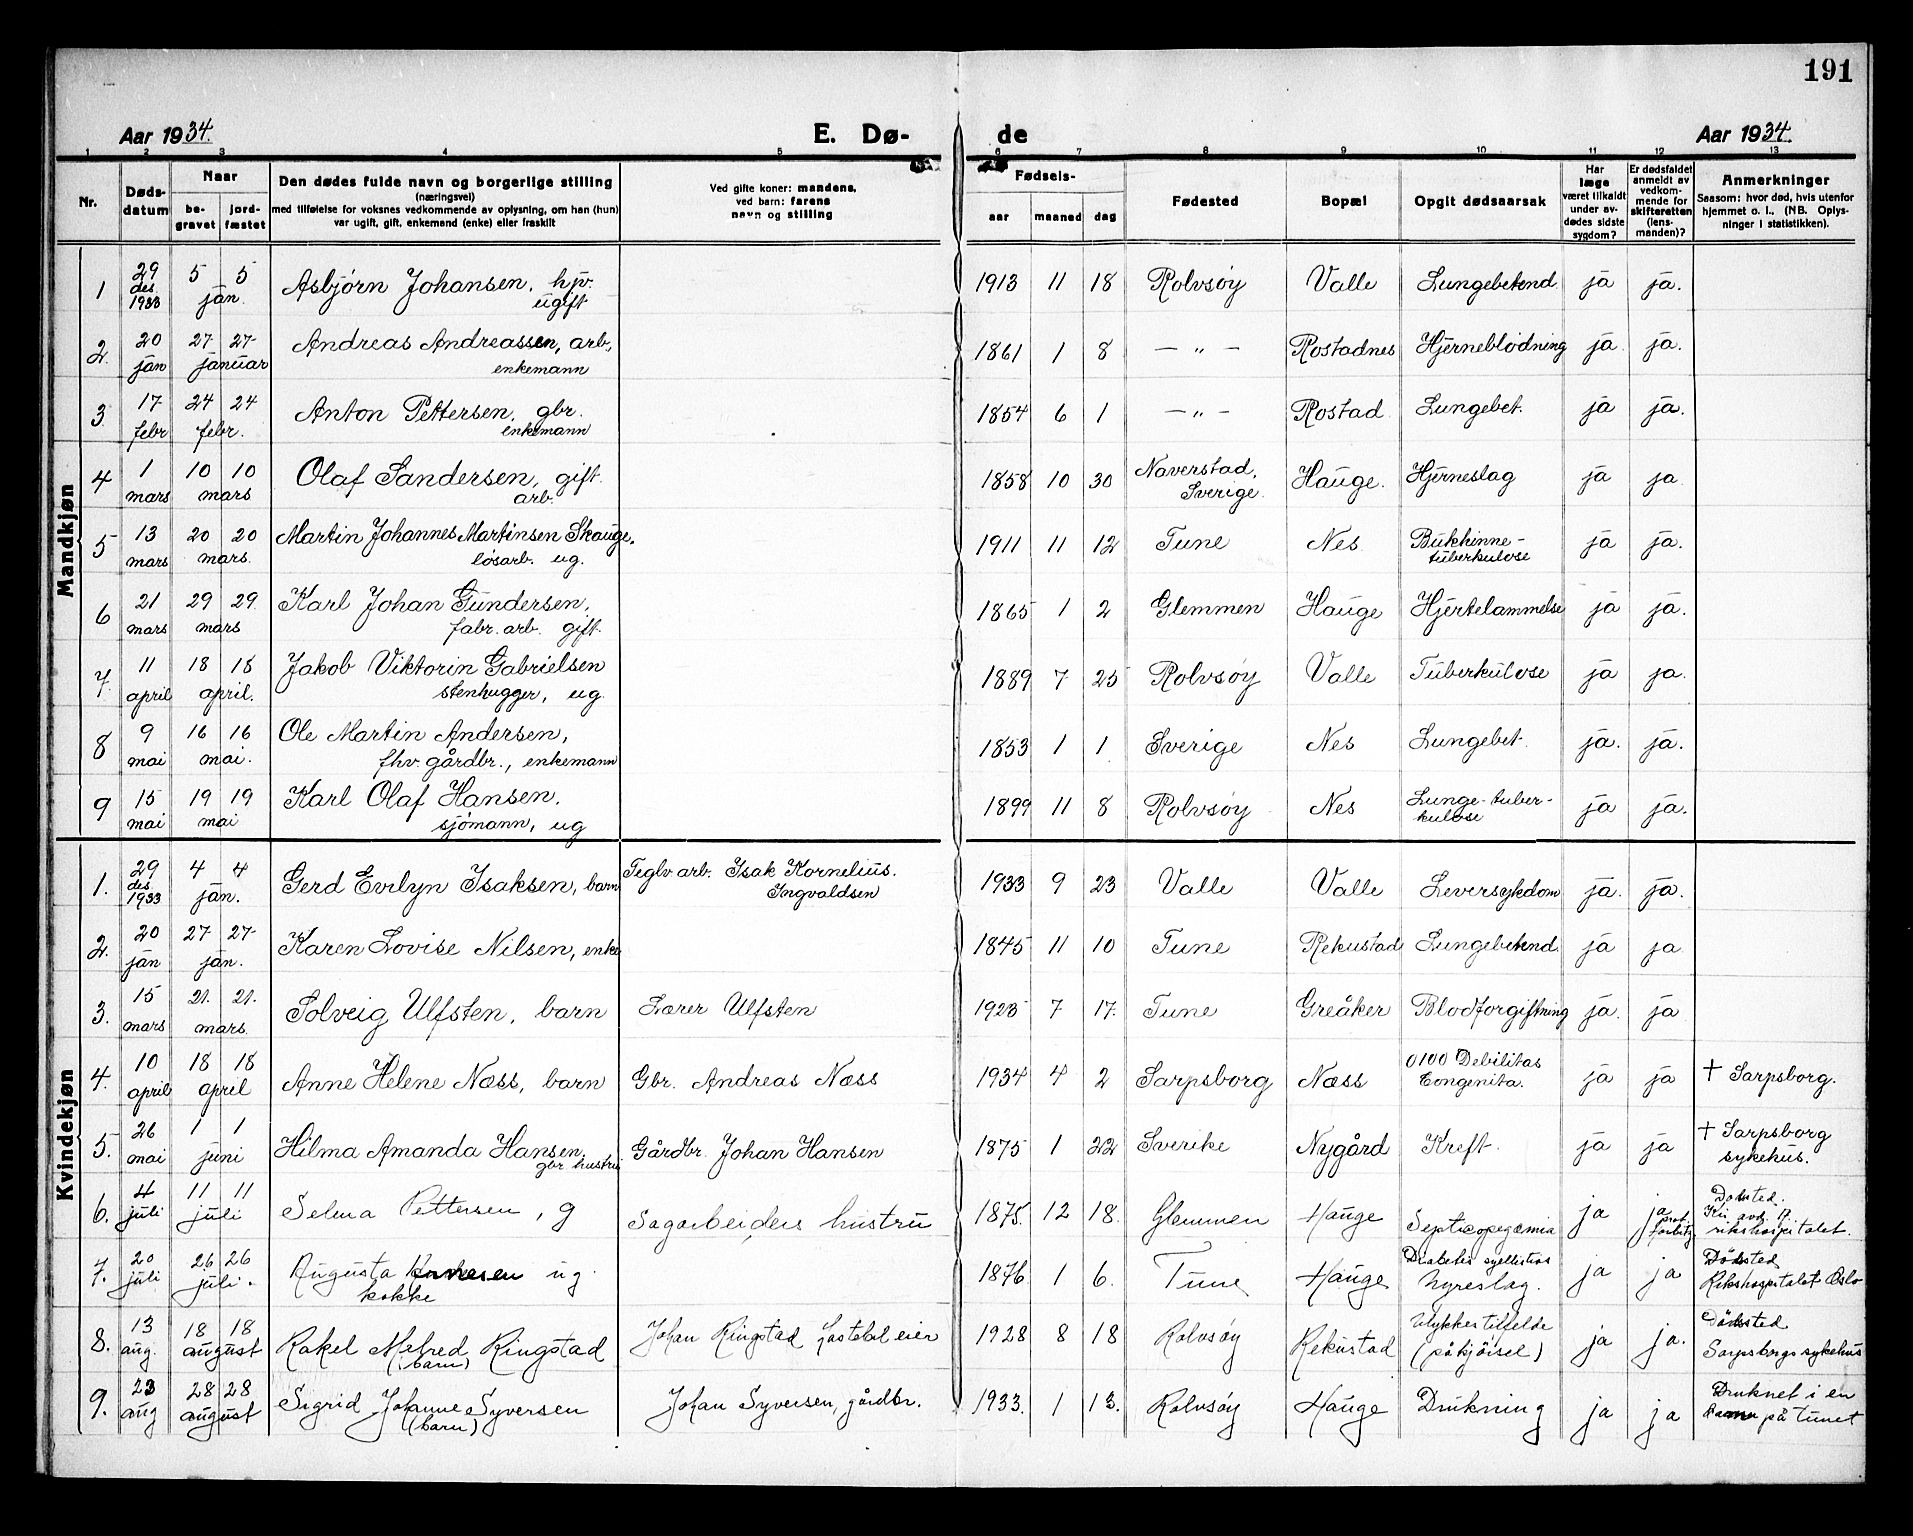 191
Aar 1934. E. Dø- de Aar 1934.
1 2 3 4 5 6 7 8 9 10 11 12 13
Nr. | Døds-datum | Naar be-gravet | jord-fæstet | Den dødes fulde navn og borgerlige stilling (næringsvei) med tilføielse for voksnes vedkommende av oplysning, om han (hun) var ugift, gift, enkemand (enke) eller fraskilt | Ved gifte koner: mandens, ved barn: farens navn og stilling | Fødsels- aar | maaned | dag | Fødested | Bopæl | Opgit dødsaarsak | Har læge været tilkaldt under av-dødes sidste sygdom? | Er dødsfaldet anmeldt av vedkom-mende for skifteretten (lens-manden)? | Anmerkninger Saasom: hvor død, hvis utenfor hjemmet o. l., (NB. Oplys-ninger i statistikken).
Mandkjøn
1 | 29 des. 1933 | 5 | 5 jan. | Asbjørn Johansen, hjv. ugift | 1913 | 11 | 18 | Rolvsøy | Valle | Lungebetend. | ja | ja.
2. | 20 jan | 27 | 27 januar | Andreas Andreassen, arb, enkemann | 1861 | 1 | 8 | — „ — | Rostadnes | Hjerneblødning | ja | ja.
3 | 17 febr | 24 | 24 febr. | Anton Pettersen, gbr. enkemann | 1854 | 6 | 1 | — „ — | Rostad | Lungebet. | ja | ja.
4 | 1 mars | 10 | 10 mars | Olaf Sandersen, gift. arb. | 1858 | 10 | 30 | Naverstad, Sverige. | Hauge. | Hjerneslag | ja | ja
5 | 13 mars | 20 | 20 mars. | Martin Johannes Martinsen Skauge, løsarb. ug. | 1911 | 11 | 12 | Tune | Nes | Bukhinne-tuberkulose | ja | ja.
6 | 21 mars | 29 | 29. mars | Karl Johan Gundersen, fabr. arb. gift. | 1865 | 1 | 2 | Glemmen | Hauge | Hjertelammelse | ja | ja.
7. | 11 april | 18 | 18 april. | Jakob Viktorin Gabrielsen stenhugger, ug. | 1889 | 7 | 25 | Rolvsøy | Valle | Tuberkulose | ja | ja.
8 | 9 mai | 16 | 16 mai. | Ole Martin Andersen, fhv. gårdbr., enkemann | 1853 | 1 | 1. | Sverige | Nes | Lungebet. | ja. | ja.
9 | 15 mai | 19 | 19 mai | Karl Olaf Hansen. sjömann, ug | 1899 | 11 | 8 | Rolvsøy | Nes | Lunge-tuber-kulose | ja | ja.
Kvindekjøn
1. | 29 des 1933 | 4 | 4 jan. | Gerd Evelyn Isaksen, barn | Teglv arb. Isak Kornelius. Ingvaldsen | 1933 | 9 | 23 | Valle | Valle | Leversykdom | ja. | ja.
2. | 20 jan | 27 | 27 jan. | Karen Lovise Nilsen, enke | 1845 | 11 | 10 | Tune | Rekustad | Lungebetend. | ja | ja
3. | 15 mars | 21. | 21. mars. | Solveig Ulfsten, barn | Lærer Ulfsten | 1923 | 7 | 17. | Tune | Greåker | Blodforgiftning | ja. | ja
4. | 10 april | 18 | 18 april | Anne Helene Næss, barn | Gbr. Andreas Næss | 1934 | 4 | 2 | Sarpsborg | Næss | 0100 Debilitas Congenita. | ja | ja | † Sarpsborg.
5. | 26 mai | 1 | 1 juni | Hilma Amanda Hansen, gbr hustru | Gårdbr. Johan Hansen | 1875 | 1 | 22 | Sverike | Nygård | Kreft. | ja | ja | † Sarpsborg sykehus.
6. | 4 juli | 11 | 11 juli | Selma Pettersen, g | Sagarbeiders hustru | 1875. | 12 | 18. | Glemmen | Hauge | ja | ja | rikshospitalet.
7. | 20 juli | 26 | 26 juli. | Augusta ug. kokke | 1876 | 1 | 6. | Tune | Hauge | Diabetis Nyreslag. | ja | ja | Dödsted Rikshospitalet Oslo
8. | 13 aug. | 18 | 18 august | Rakel Melred Ringstad (barn) | Johan Ringstad Lastebil eier | 1928 | 8 | 18 | Rolvsøy | Rekustad | Ulykkestilfelde (påkjöisel) | ja | ja. | Dödsted Sarpsborgs sykehus
9. | 23 aug | 28 | 28 august | Sigrid Johanne Syversen (barn) | Johan Syversen, gårdbr. | 1933. | 1 | 13. | Rolvsøy | Hauge | Drukning | ja | ja | Druknet i en på tunet